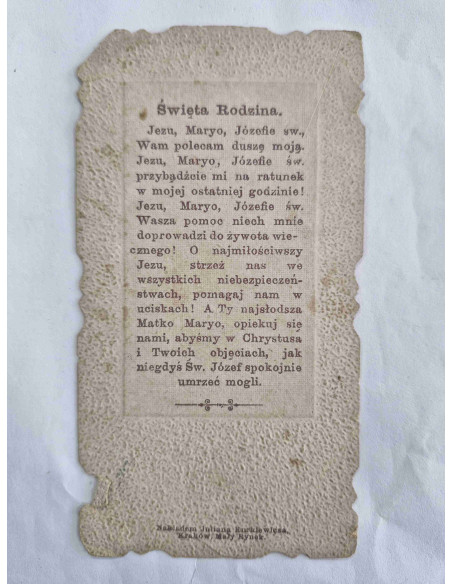 Święta Rodzina.
Jezu, Maryo, Józefie sw.,
Wam polecam duszę moją.
Jezu, Maryo, Józefie św.
przybądźcie mi na ratunek
w mojej ostatniej godzinie!
Jezu, Maryo, Józefie św.
Wasza pomoc niech mnie
doprowadzi do żywota wie-
cznego! O najmiłościwszy
Jezu, strzeż nas we
wszystkich niebezpieczeń-
stwach, pomagaj nam w
uciskach! A Ty najsłodsza
Matko Maryo, opiekuj się
nami, abyśmy w Chrystusa
i Twoich objęciach, jak
niegdyś Św. Józef spokojnie
umrzeć mogli.
Nakładem Juliana Kurkiewicza,
Kraków, Mały Rynek.